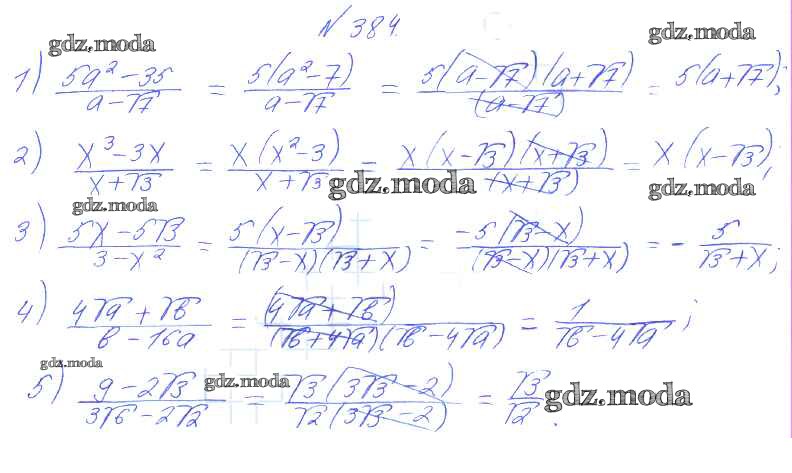 №384.
gdz.moda
gdz.moda
1) (5a² – 35)/(a – √7) = 5(a² – 7)/(a – √7) = 5(a – √7)(a + √7)/(a – √7) = 5(a + √7);
2) (x³ – 3x)/(x + √3) = x(x² – 3)/(x + √3) = x(x – √3)(x + √3)/(x + √3) = x(x – √3);
gdz.moda
gdz.moda
gdz.moda
3) (5x – 5√3)/(3 – x²) = 5(x – √3)/((√3 – x)(√3 + x)) = –5(√3 – x)/((√3 – x)(√3 + x)) = – 5/(√3 + x);
4) (4√a + √b)/(b – 16a) = (4√a + √b)/((√b + 4√a)(√b – 4√a)) = 1/(√b – 4√a);
gdz.moda
5) (9 – 2√3)/(3√6 – 2√2) = √3(3√3 – 2)/(√2(3√3 – 2)) = √3/√2.
gdz.moda
gdz.moda